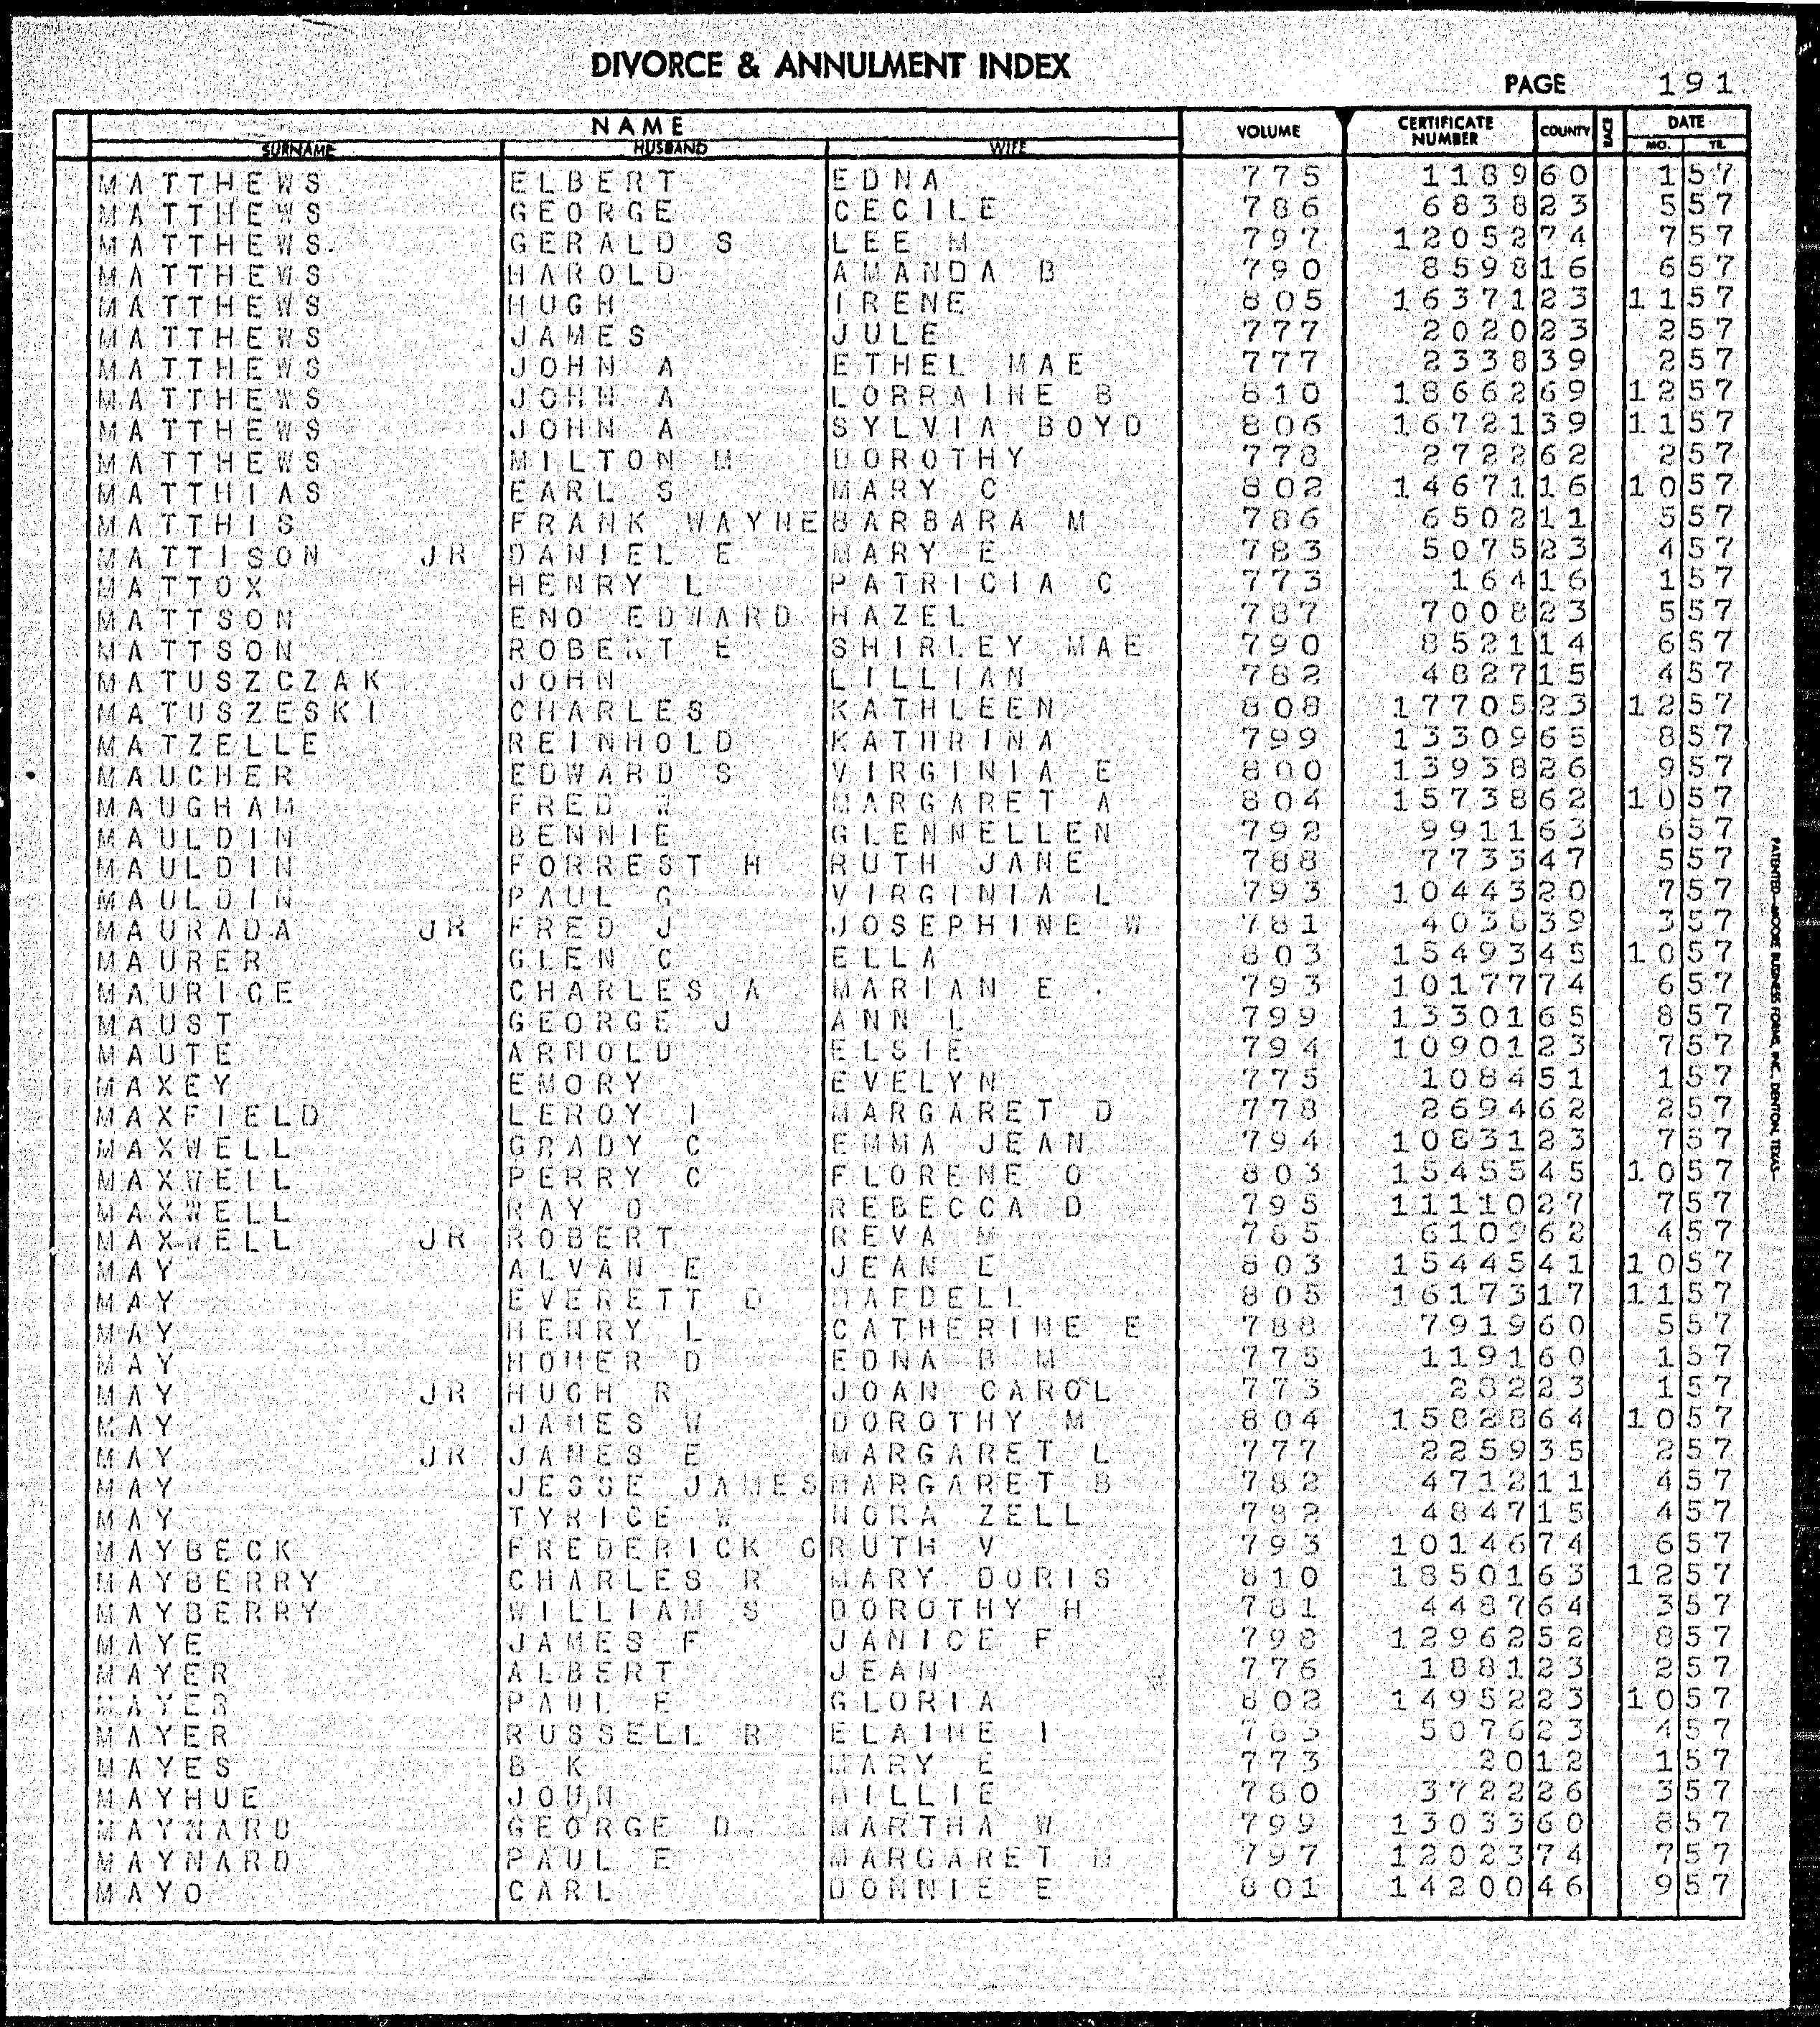 DIVORCE & ANNULMENT INDEX
PAGE 191
NAME VOLUME CERTIFICATE NUMBER COUNTY RACE DATE
SURNAME HUSBAND WIFE MO. YR.
MATTHEWS ELBERT EDNA 775 1189 60 1 57
MATTHEWS GEORGE CECILE 786 6838 23 5 57
MATTHEWS GERALD S LEE M 797 12052 74 7 57
MATTHEWS HAROLD AMANDA B 790 8598 16 6 57
MATTHEWS HUGH IRENE 805 16371 23 11 57
MATTHEWS JAMES JULE 777 2020 23 2 57
MATTHEWS JOHN A ETHEL MAE 777 2338 39 2 57
MATTHEWS JOHN A LORRAINE B 810 18662 69 12 57
MATTHEWS JOHN A SYLVIA BOYD 806 16721 39 11 57
MATTHEWS MILTON M DOROTHY 778 2722 62 2 57
MATTHIAS EARL S MARY C 802 14671 16 10 57
MATTHIS FRANK WAYNE BARBARA M 786 6502 11 5 57
MATTISON JR DANIEL E MARY E 783 5075 23 4 57
MATTOX HENRY L PATRICIA C 773 164 16 1 57
MATTSON ENO EDWARD HAZEL 787 7008 23 5 57
MATTSON ROBERT E SHIRLEY MAE 790 8521 14 6 57
MATUSZCZAK JOHN LILLIAN 782 4827 15 4 57
MATUSZESKI CHARLES KATHLEEN 808 17705 23 12 57
MATZELLE REINHOLD KATHRINA 799 13309 65 8 57
MAUCHER EDWARD S VIRGINIA E 800 13938 26 9 57
MAUGHAM FRED W MARGARET A 804 15738 62 10 57
MAULDIN BENNIE GLENNELLEN 792 9911 63 6 57
MAULDIN FORREST H RUTH JANE 788 7733 47 5 57
MAULDIN PAUL G VIRGINIA L 793 10443 20 7 57
MAURADA JR FRED J JOSEPHINE W 781 4038 39 3 57
MAURER GLEN C ELLA 803 15493 45 10 57
MAURICE CHARLES A MARIAN E . 793 10177 74 6 57
MAUST GEORGE J ANN L 799 13301 65 8 57
MAUTE ARNOLD ELSIE 794 10901 23 7 57
MAXEY EMORY EVELYN 775 1084 51 1 57
MAXFIELD LEROY I MARGARET D 778 2694 62 2 57
MAXWELL GRADY C EMMA JEAN 794 10831 23 7 57
MAXWELL PERRY C FLORENE O 803 15455 45 10 57
MAXWELL RAY D REBECCA D 795 11110 27 7 57
MAXWELL JR ROBERT REVA M 785 6109 62 4 57
MAY ALVAN E JEAN E 803 15445 41 10 57
MAY EVERETT D 805 16173 17 11 57
MAY HENRY L CATHERINE E 788 7919 60 5 57
MAY HOMER D EDNA B M 775 1191 60 1 57
MAY JR HUGH R JOAN CAROL 773 282 23 1 57
MAY JAMES W DOROTHY M 804 15828 64 10 57
MAY JR JAMES E MARGARET L 777 2259 35 2 57
MAY JESSE JAMES MARGARET B 782 4712 11 4 57
MAY TYRICE W NORA ZELL 782 4847 15 4 57
MAYBECK FREDERICK G RUTH V 793 10146 74 6 57
MAYBERRY CHARLES R MARY DORIS 810 18501 63 12 57
MAYBERRY WILLIAM S DOROTHY H 781 4487 64 3 57
MAYE JAMES F JANICE F 798 12962 52 8 57
MAYER ALBERT JEAN 776 1881 23 2 57
MAYER PAUL E GLORIA 802 14952 23 10 57
MAYER RUSSELL R ELAINE I 783 5076 23 4 57
MAYES B K MARY E 773 20 12 1 57
MAYHUE JOHN MILLIE 780 3722 26 3 57
MAYNARD GEORGE D MARTHA W 799 13033 60 8 57
MAYNARD PAUL E MARGARET M 797 12023 74 7 57
MAYO CARL DONNIE E 801 14200 46 9 57
PATENTED—MOORE BUSINESS FORMS, INC., DENTON, TEXAS—